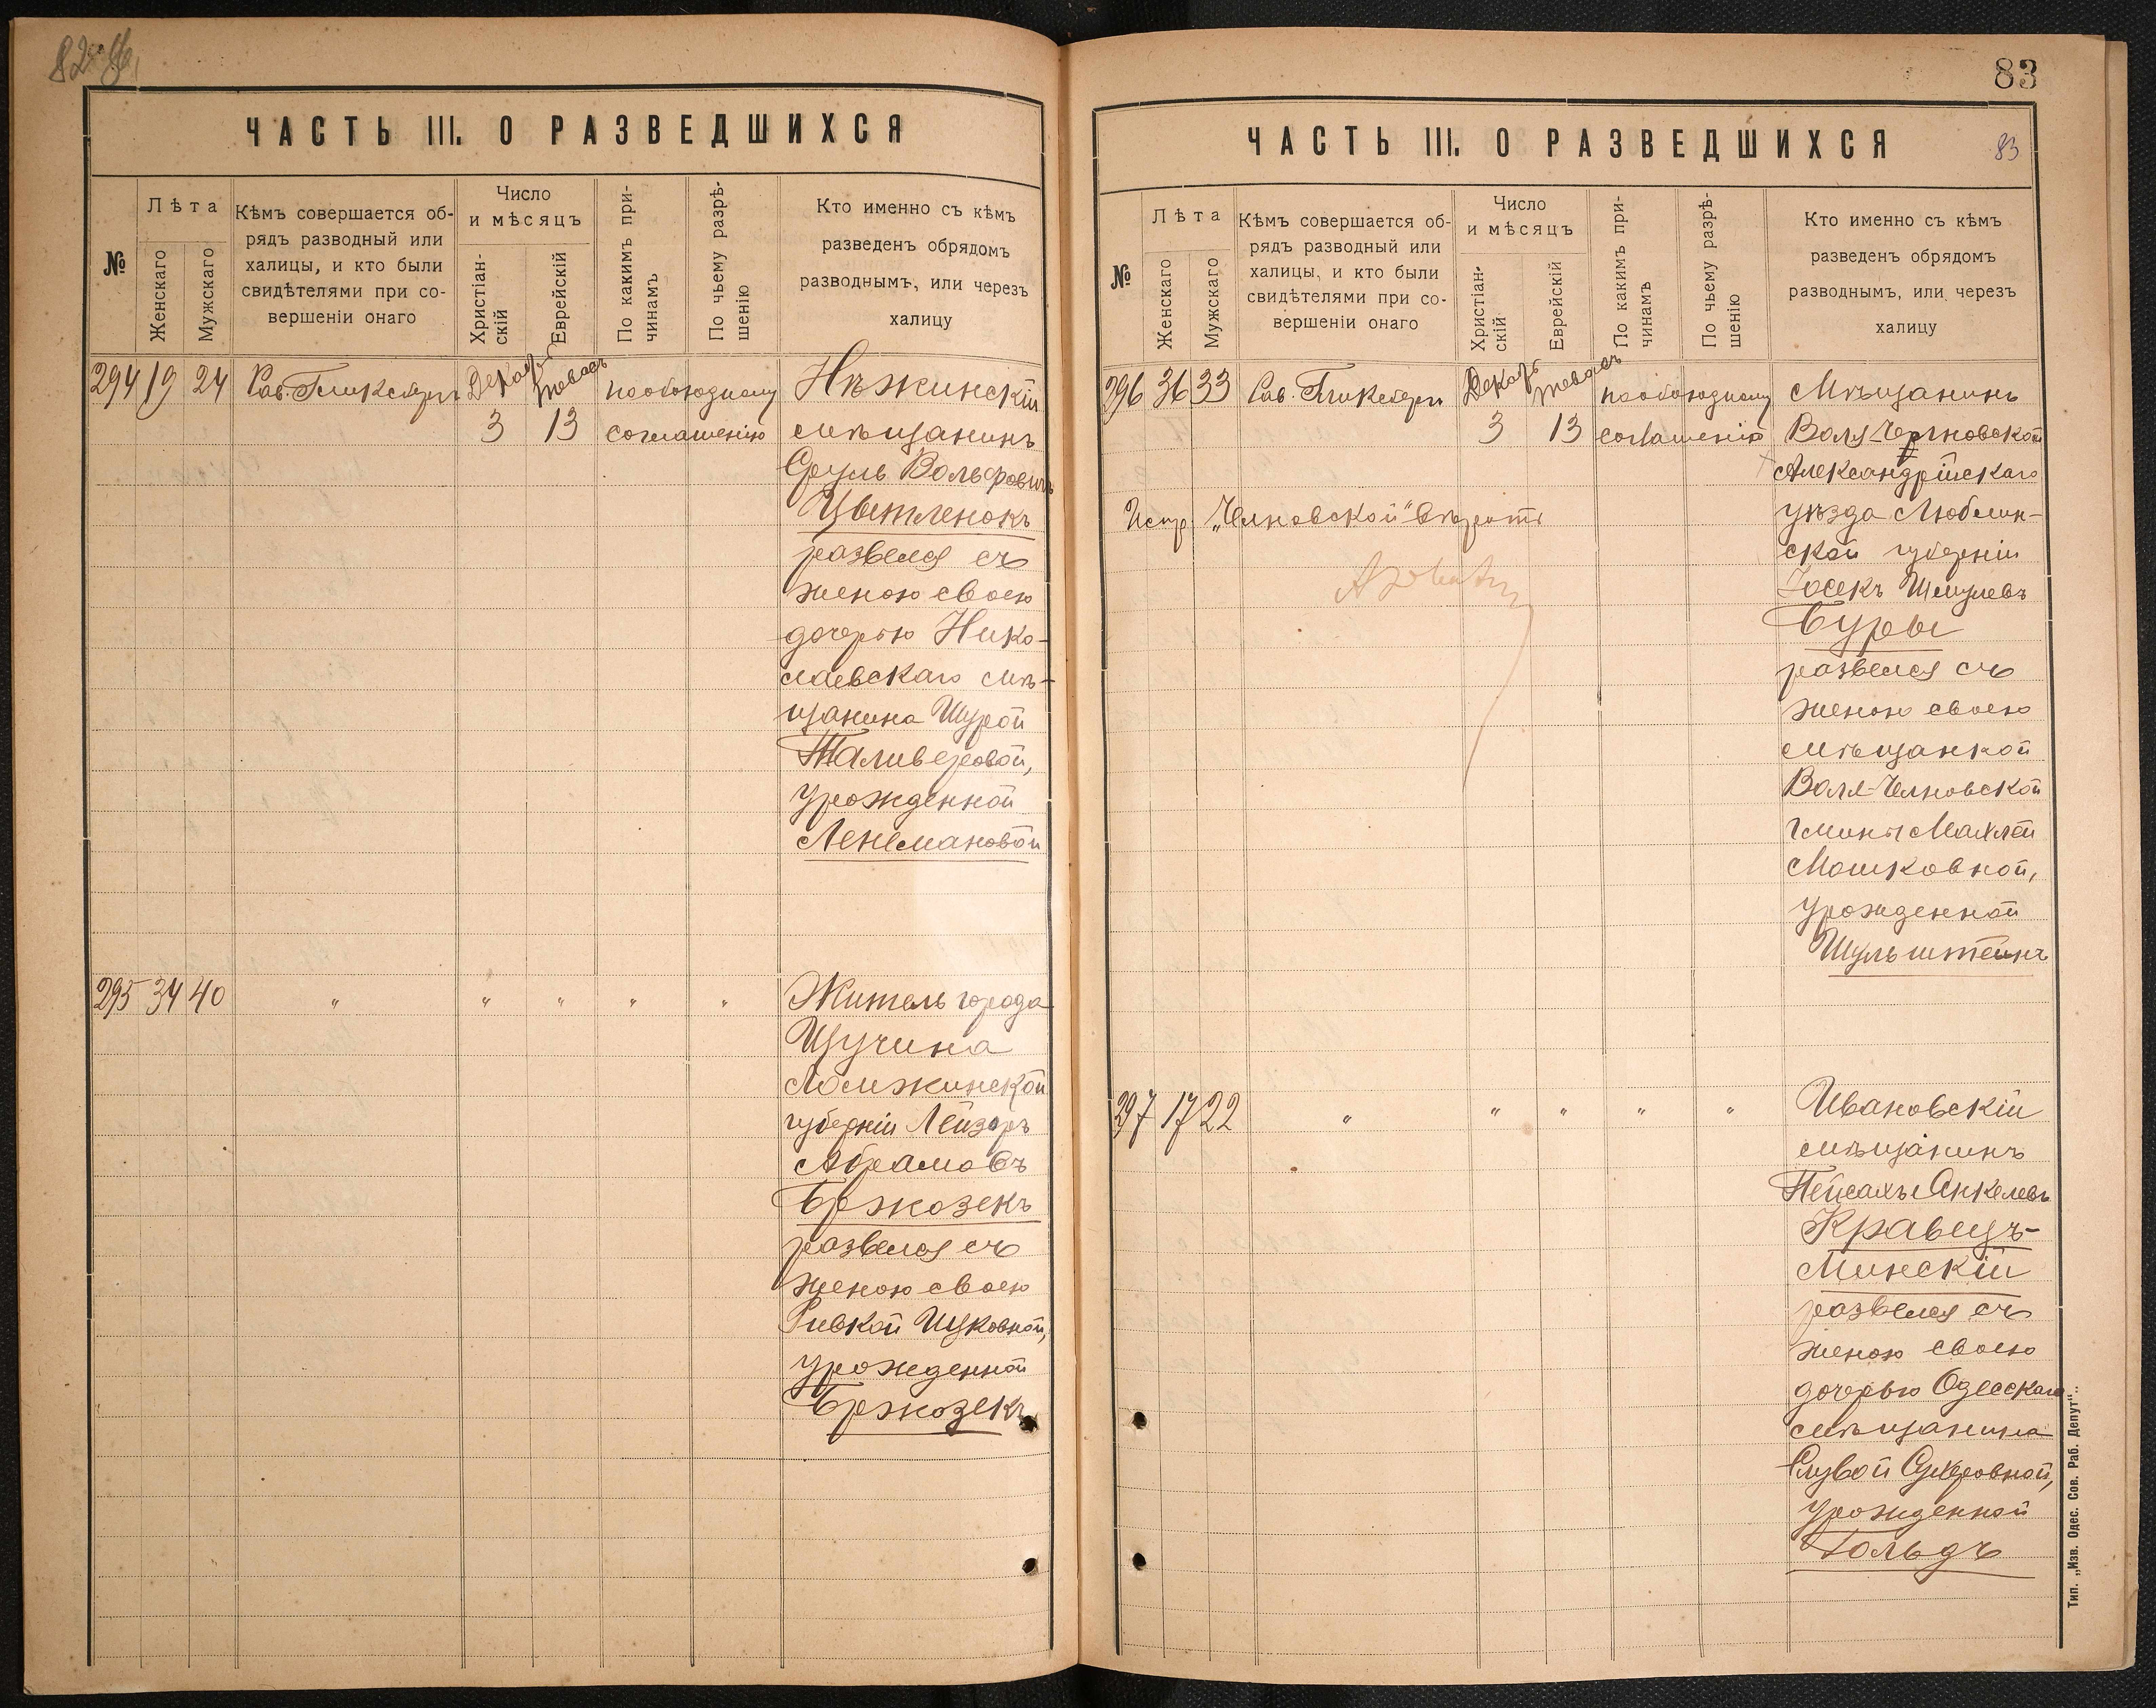 ЧАСТЬ III. О РАЗВЕДШИХСЯ
№
Лѣта
Женскаго
Мужскаго
Кѣмъ совершается об-
рядъ разводный или
халицы, и кто были
свидѣтелями при со-
вершеніи онаго
Число
и мѣсяцъ
Христіан-
скій
Еврейскій
По какимъ при-
чинамъ
По чьему разрѣ-
шенію
Кто именно съ кѣмъ
разведенъ обрядомъ
разводнымъ, или черезъ
халицу
294 19 24 Рав. Гликсбергъ Декабр. 3 13 по обоюдному
соглашенію
Нѣжинскій
мѣщанинъ
Сруль Вольфовичъ
Цветленокъ
развелся съ
женою своею
дочерью Нико-
лаевскаго мѣ-
щанина Шурой
Таливеровой,
урожденной
Ленемановой
295 34 40 " " " " "
Житель города
Щучина
Ломжинской
губерніи Лейзоръ
Абрамовъ
Бржозекъ
развелся съ
женою своею
Ривкой Ицковной,
урожденной
Бржозекъ
83
ЧАСТЬ III. О РАЗВЕДШИХСЯ
83
№
Лѣта
Женскаго
Мужскаго
Кѣмъ совершается об-
рядъ разводный или
халицы, и кто были
свидѣтелями при со-
вершеніи онаго
Число
и мѣсяцъ
Христіан-
скій
Еврейскій
По какимъ при-
чинамъ
По чьему разрѣ-
шенію
Кто именно съ кѣмъ
разведенъ обрядомъ
разводнымъ, или черезъ
халицу
296 36 33 Рав. Гликсбергъ Декабр. 3 13 по обоюдному
соглашенію
Испр. „Челновской" вѣрить
Мѣщанинъ
Воля-Черновской
Александрійскаго
уѣзда Люблин-
ской губерніи
Іосекъ Шмулевъ
Буры
развелся съ
женою своею
мѣщанкой
Воля-Челновской
гмины Махлей
Мошковной,
урожденной
Шульштейнъ
297 17 22 " " " " "
Ивановскій
мѣщанинъ
Пейсахъ Янкелевъ
Кравецъ-
Минскій
развелся съ
женою своею
дочерью Одесскаго
мѣщанина
урожденной
Гольдъ
Тип. „Изв. Одес. Сов. Раб. Депут".